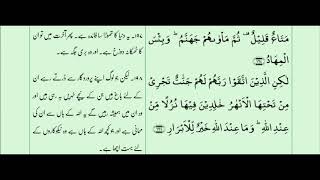 مَتَاعٌ قَلِيلٌ ۟ ثُمَّ مَأْوٰىهُمْ جَهَنَّمُ ؕ وَبِئْسَ
الْمِهَادُ
لٰكِنِ الَّذِينَ اتَّقَوْا رَبَّهُمْ لَهُمْ جَنّٰتٌ تَجْرِىْ
مِنْ تَحْتِهَا الْاَنْهٰرُ خٰلِدِينَ فِيْهَا نُزُلًا مِّنْ
عِنْدِ اللّٰهِ ؕ وَمَا عِنْدَ اللّٰهِ خَيْرٌ لِّلْاَبْرَارِ
۱۹۷۔ یہ دنیا کا تھوڑا سا فائدہ ہے۔ پھر آخرت میں تو ان
کا ٹھکانہ دوزخ ہے۔ اور وہ بری جگہ ہے۔
۱۹۸۔ لیکن جو لوگ اپنے پروردگار سے ڈرتے رہے ان
کے لئے باغ ہیں جن کے نیچے نہریں بہہ رہی ہیں اور
ان میں ہمیشہ رہیں گے یہ اللہ کے ہاں سے ان کی
مہمانی ہے اور جو کچھ اللہ کے ہاں ہے وہ نیکوکاروں کے
لئے بہت اچھا ہے۔